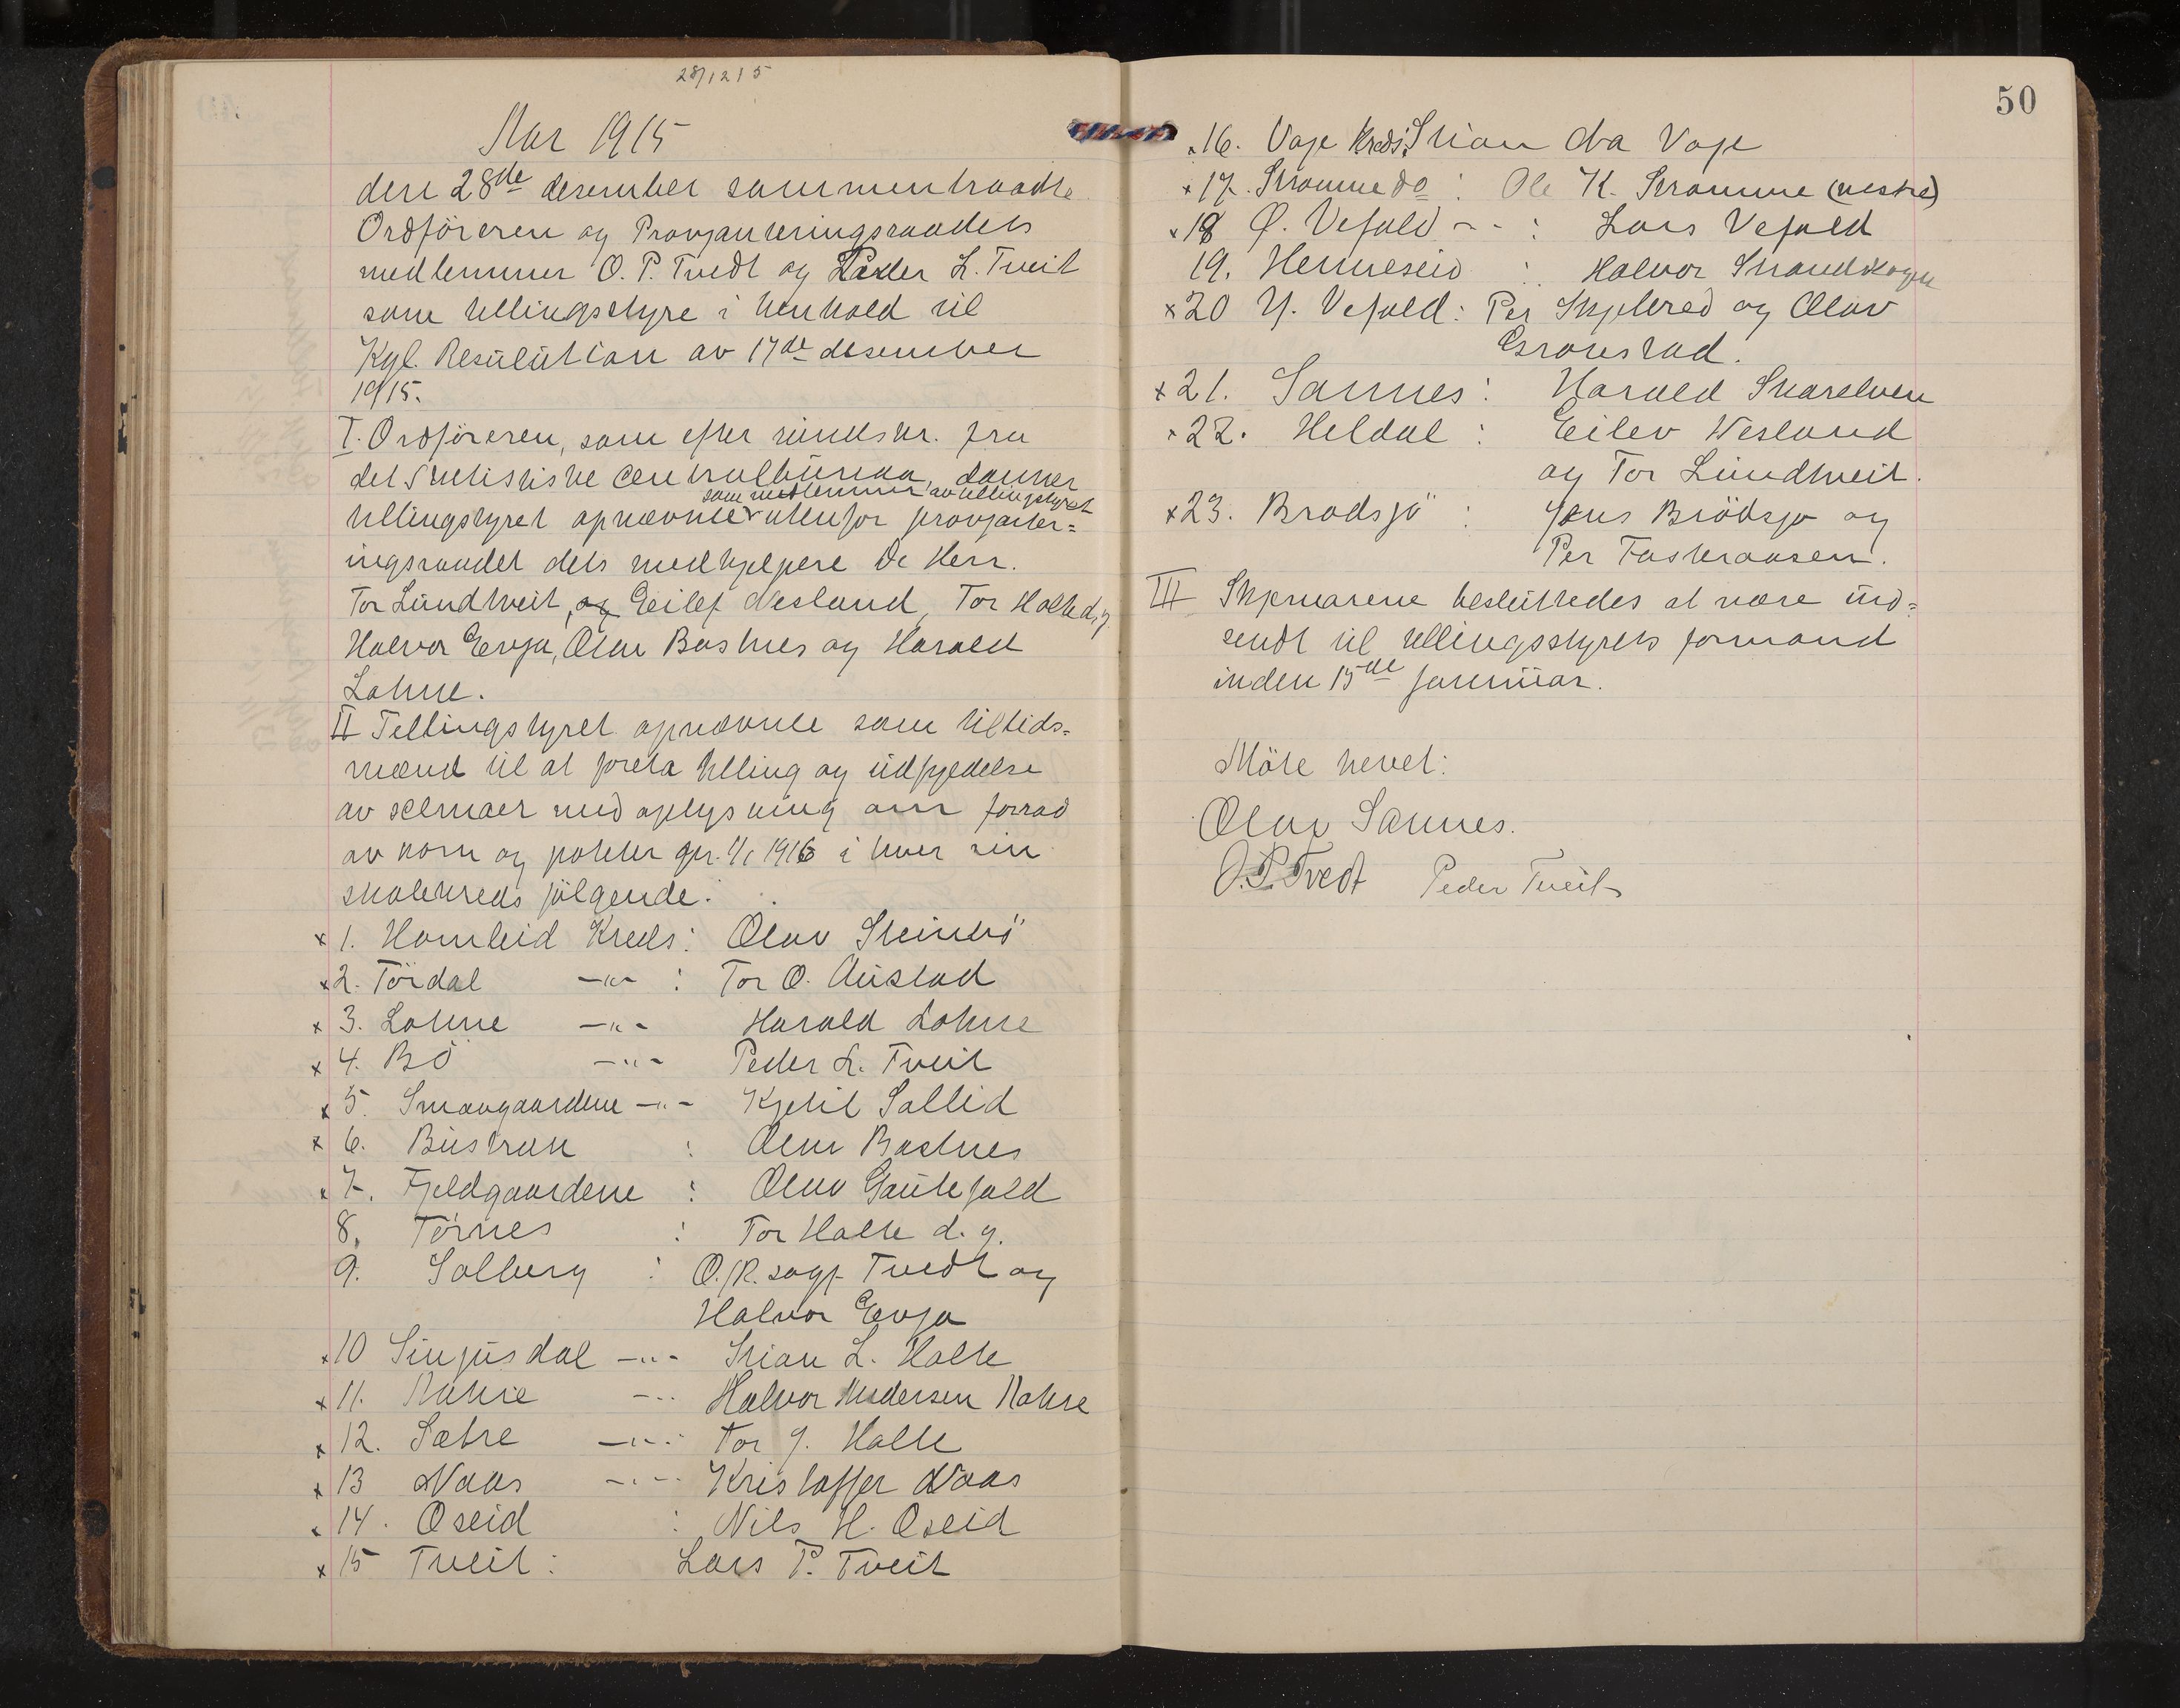 28/12 15
Aar 1915
den 28de desember sammentraadte
Ordföreren og Provianteringsraadets
medlemmer O. P. Tvedt og Peder L. Tveit
som tellingsstyre i henhold til
Kgl. Resolution av 17de desember
1915.
I. Ordföreren, som efter rundskr. fra
det Statistiske Centralbureau, danner
som medlemmer av tellingstyret
tellingstyret opnævnte utenfor provianter=
ingsraadet dets medhjelpere De Herr.
Tor Lundtveit, og Eilef Nesland, Tor Holte d.y.
Halvor Evja, Olav Bostnes og Harald
Lohne.
II Tellingstyret opnævnte som tillids=
mænd til at foreta telling og utfyldelse
av skemaer med oplysning om forraad
av korn og poteter pr. 1/1 1916 i hver sin
skolekreds følgende:
x 1. Homleid Kreds: Olav Steinbö
x 2. Tördal -"- : Tor O. Austad
x 3. Lohne -"- Harald Lohne
x 4. Bö -"- Peder L. Tveit
x 5. Smaagaardene -"- Kjetil Sollid
x 6. Bustrak : Olav Bostnes
x 7. Fjeldgaardene : Olav Gautefald
8. Törnes : Tor Holte d. y.
9. Solberg : O. P. sagf. Tvedt og
Halvor Evja
x 10 Sinjusdal -"- Stian L. Holte
x 11. Kaahre -"- Halvor Andersen
x 12. Sætre -"-: Tor J. Holte
x 13 Naas -"- Kristoffer Naas
x 14. Oseid : Nils H. Oseid
x 15 Tveit: Lars P. Tveit
50
x 16. Voje Kreds: Stian Voje
x 17. Strømme do : Ole K. Strømme (vestre)
x 18 Ø. Vefald - - : Lars Vefald
19. Henneseid : Halvor Strandskogen
x 20 Y. Vefald: Per Skjelbred og Olav
Gronstad.
x 21. Sannes: Harald Skarelven
x 22. Heldal : Eilev Nesland
og Tor Lundtveit.
x 23. Brødsjö : Jens Brödsjø og
Per Fosteraasen.
III Skjemaene besluttedes at være ind=
sendt til tellingsstyrets formand
inden 15de januar.
Möte hevet:
Olav Sannes.
O. P. Tvedt Peder Tveit